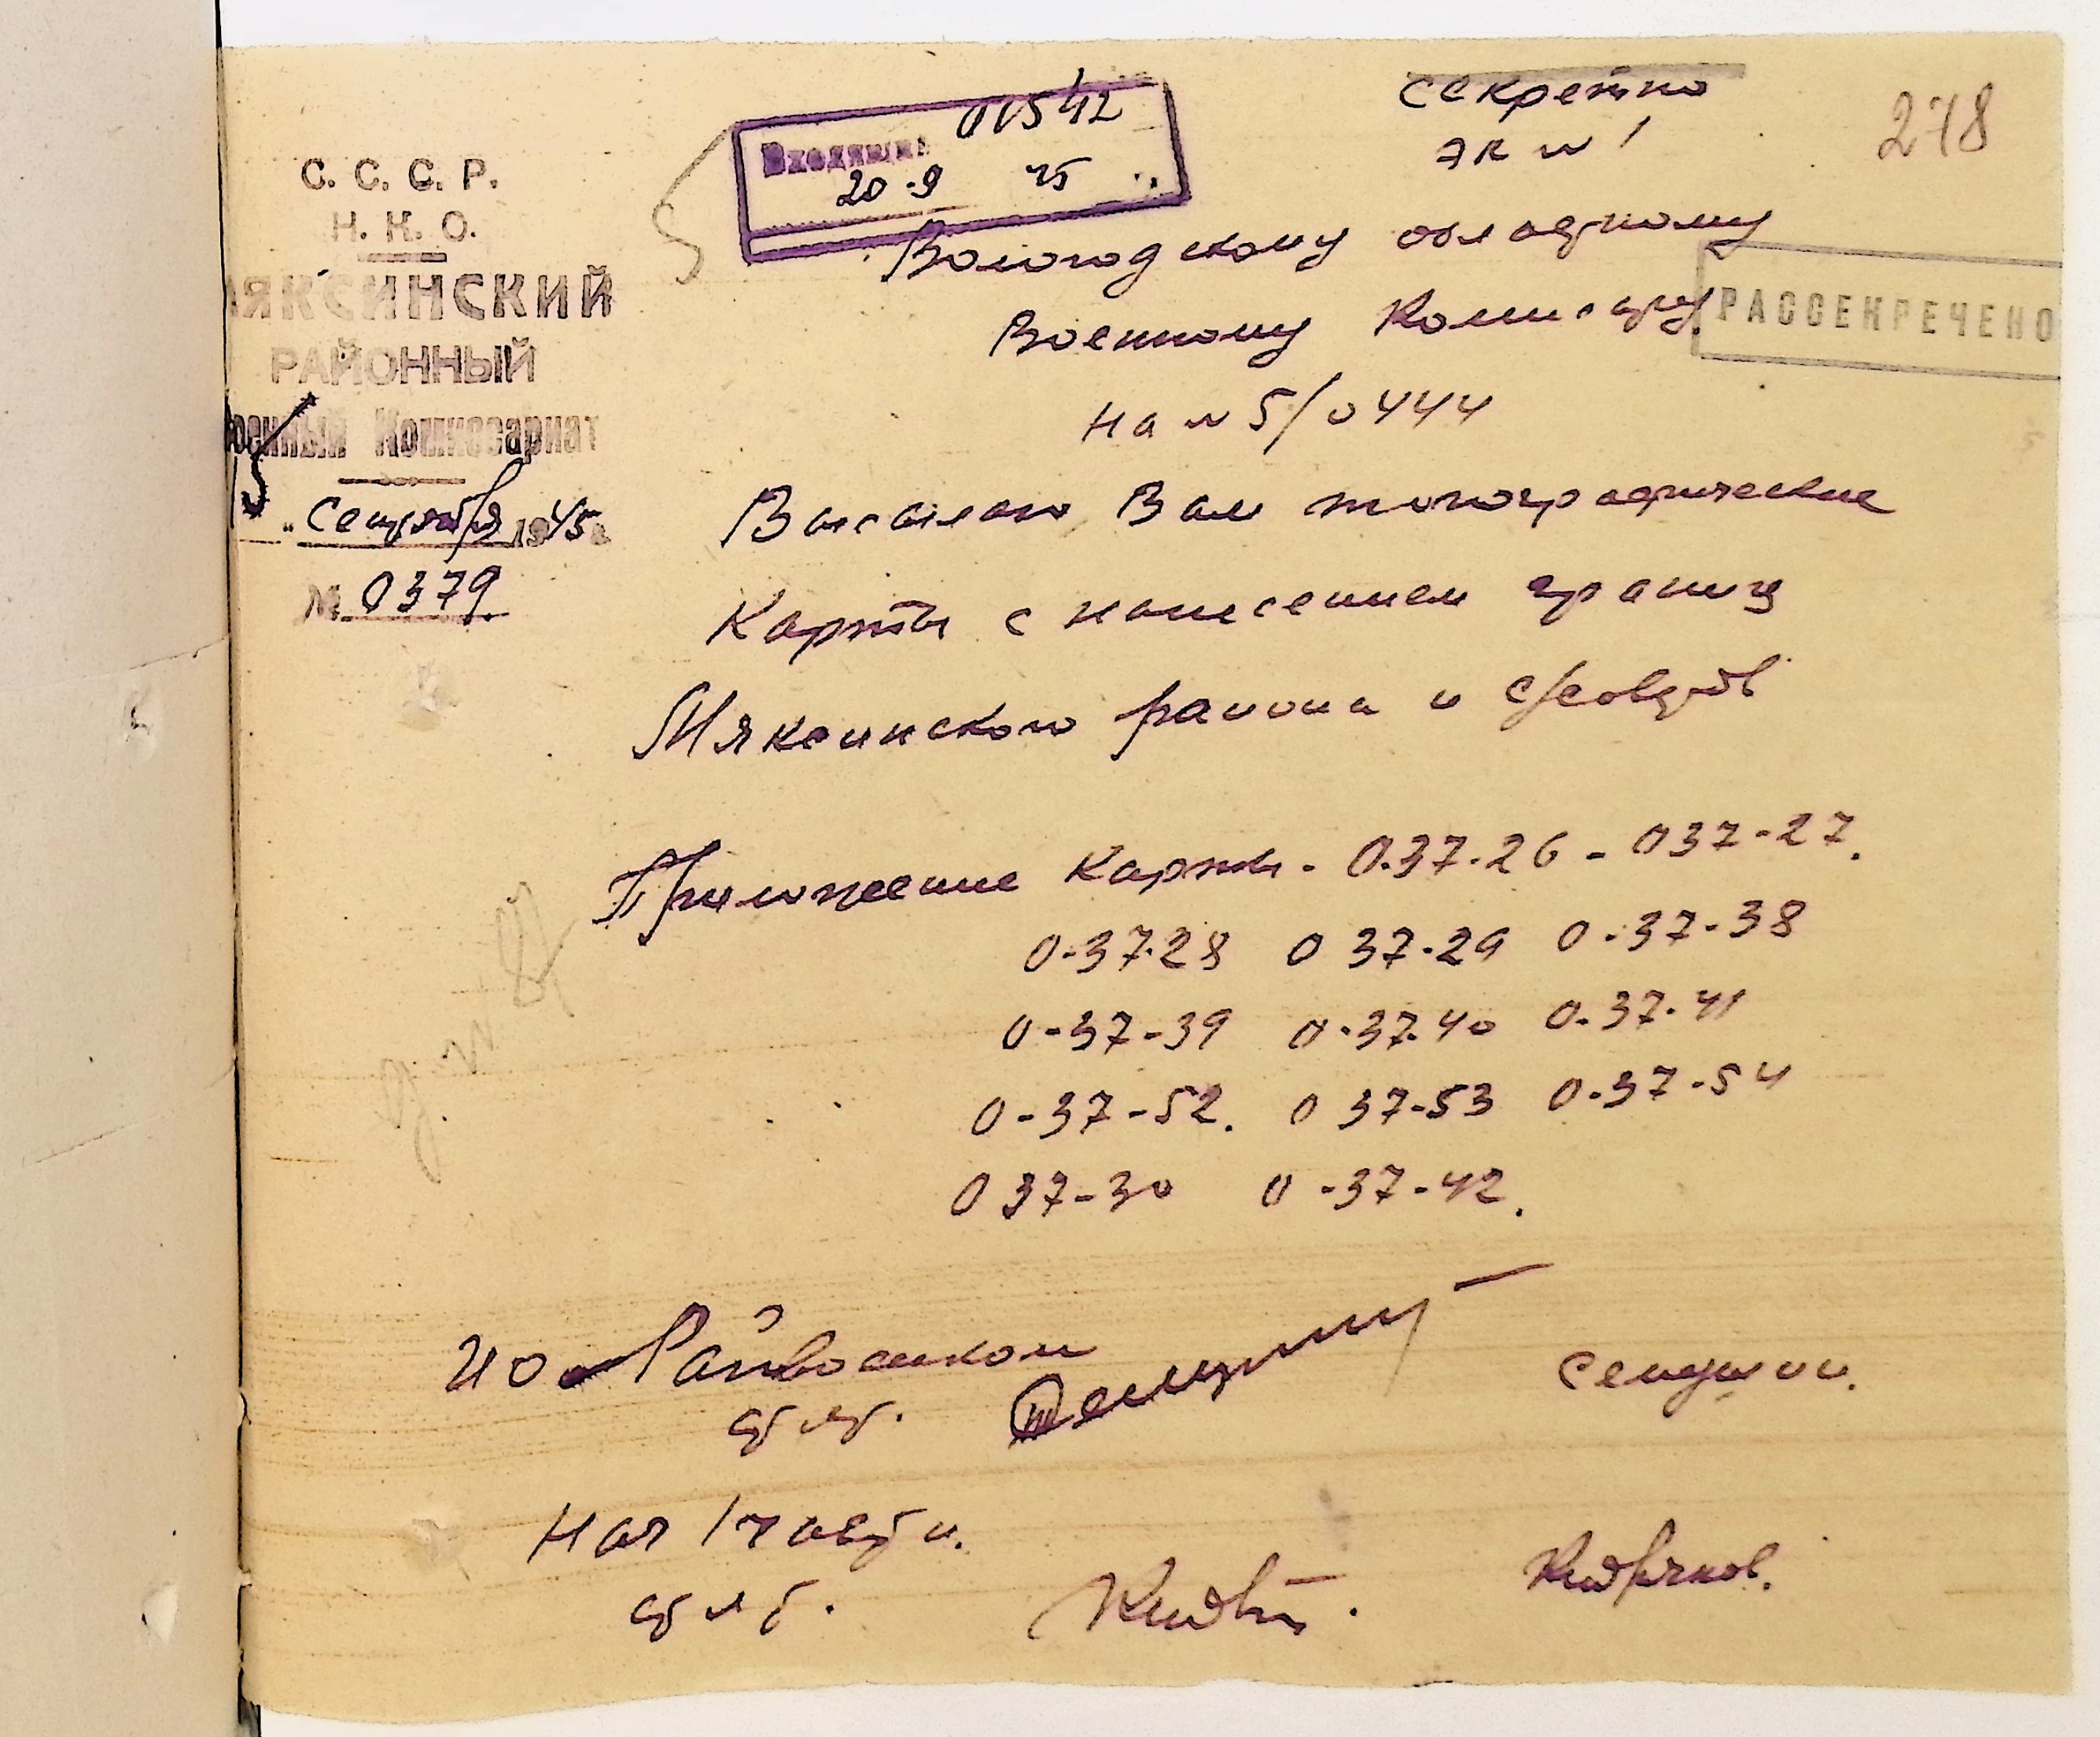 С. С. С. Р.
Н. К. О.
ЯКСИНСКИЙ
РАЙОННЫЙ
оенный Комиссариат
15
" Сентября 1945 г.
№ 0379
Входящий 01542
20-9 45
Секретно
экз № 1
278
Вологодскому областному
Военному Комиссару
РАССЕКРЕЧЕНО
на № 5/0444
Высылаю Вам топографические
Карты с нанесением границ
Мяксинского района и с/советов
Приложение Карты - 0.37.26 - 037-27.
0-37.28 0 37-29 0-37-38
0-37-39 0-37.40 0.37.41
0-37-52. 0 37-53 0-37-54
0 37-30 0-37-42.
ИО Райвоенком
Нач 1 части.